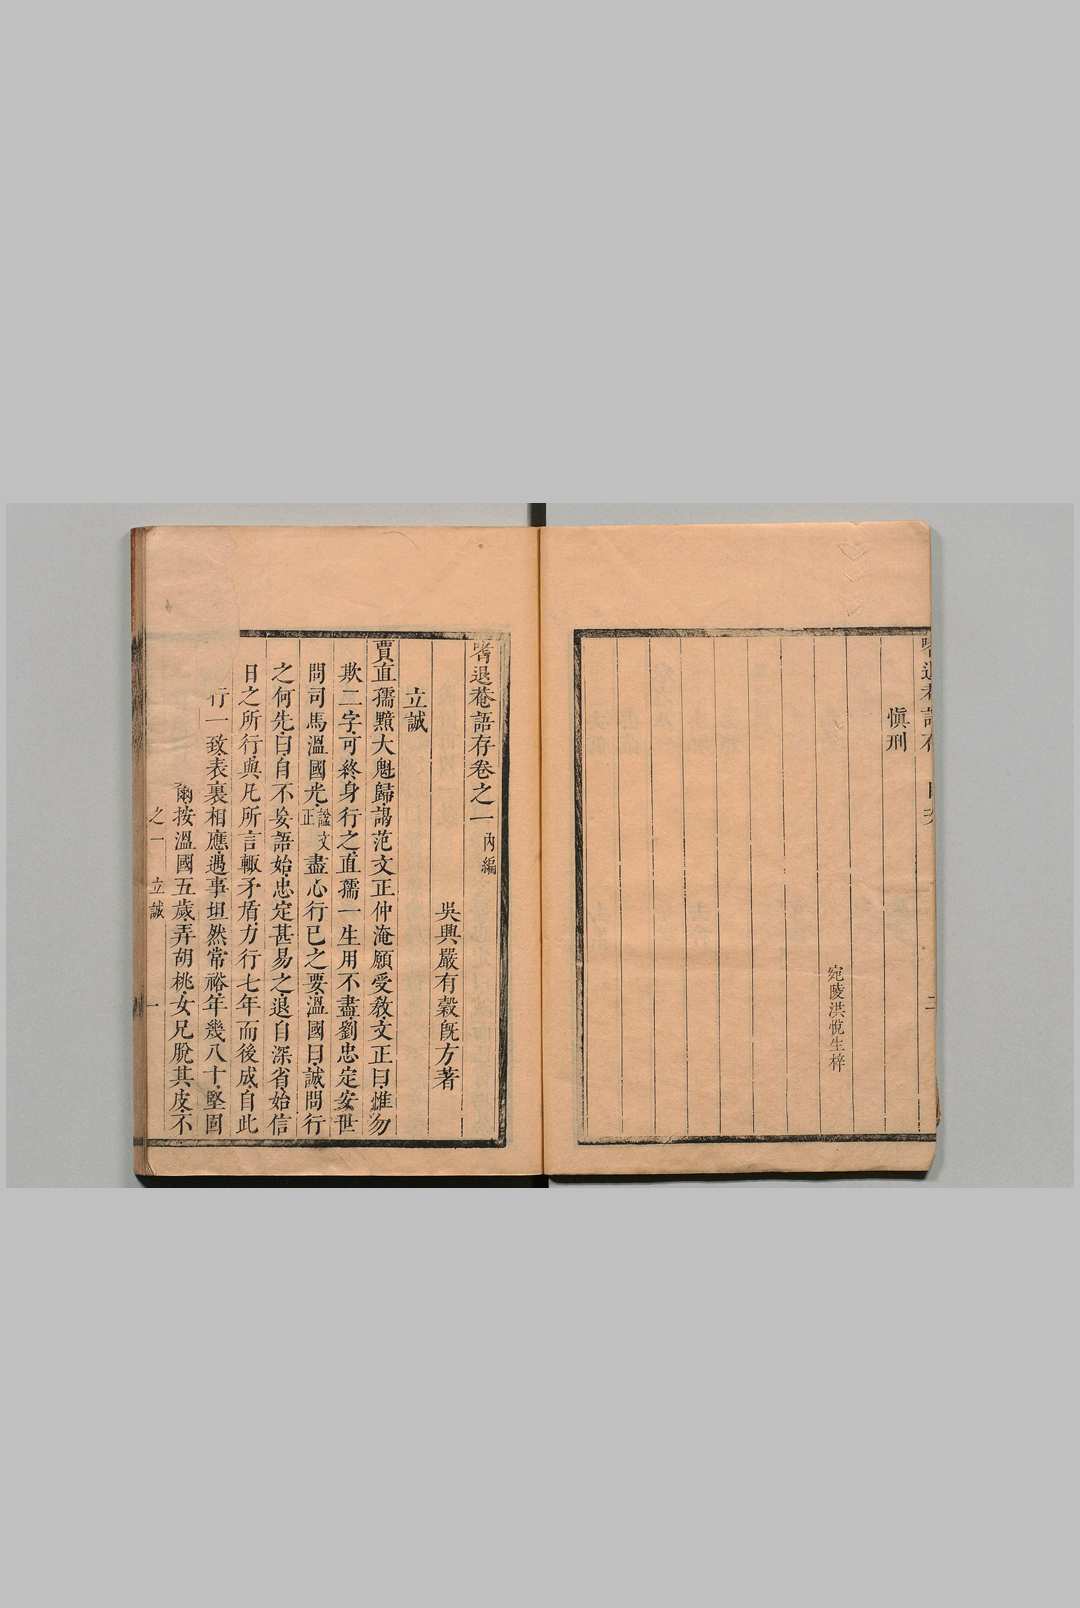 愼刑
宛陵洪悅生梓
嗜退菴語存卷之一 內編
吳興嚴有穀旣方著
立誠
賈直孺黯大魁歸謁范文正仲淹願受敎文正曰惟勿
欺二字可終身行之直孺一生用不盡劉忠定安世
問司馬溫國光諡文正盡心行已之要溫國曰誠問行
之何先曰自不妄語始忠定甚易之退自深省始信
日之所行與凡所言輙矛盾力行七年而後成自此
行一致表裏相應遇事坦然常裕年幾八十堅固
按溫國五歲弄胡桃女兄脫其皮不
之一 立誠 一